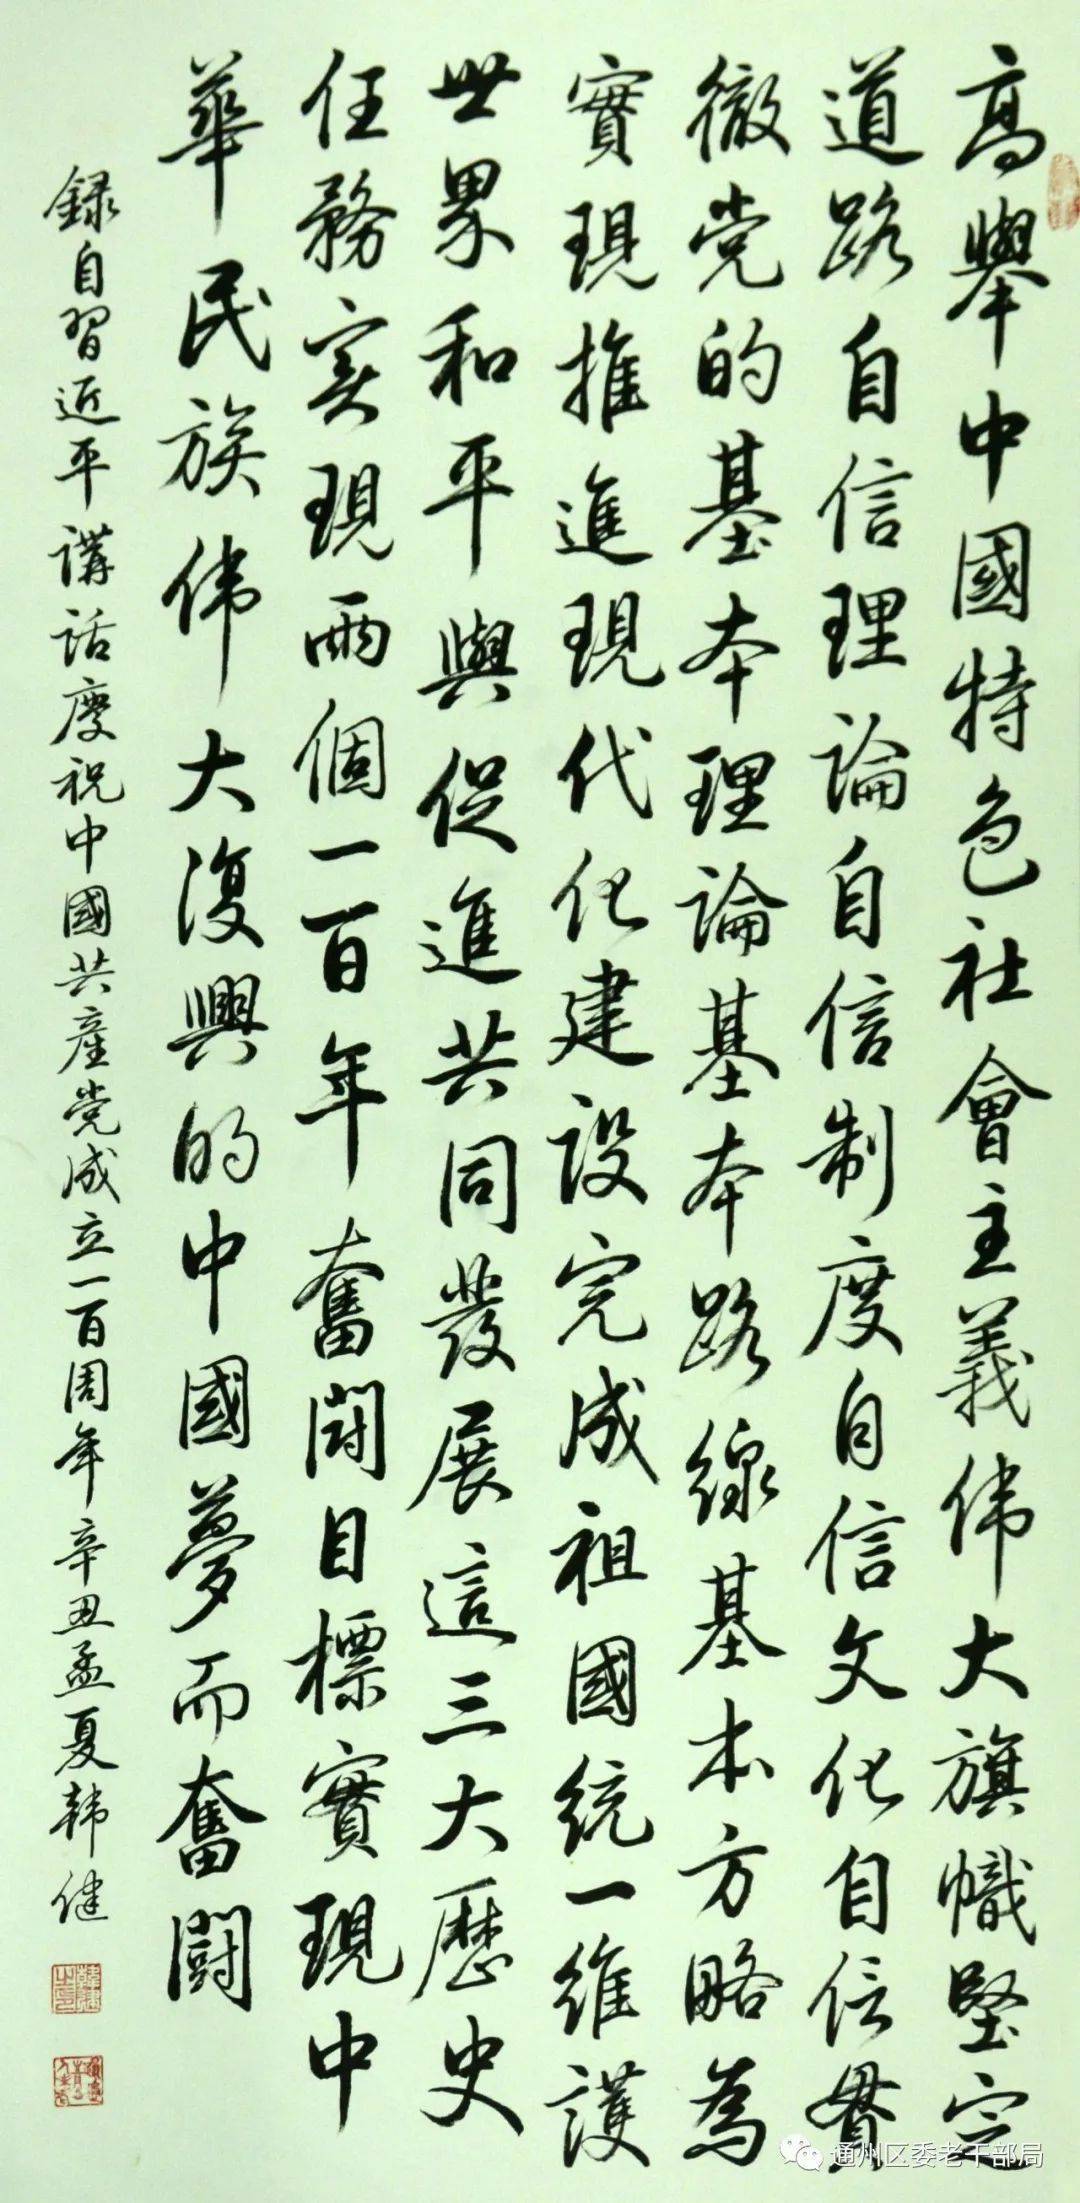 高舉中國特色社會主義伟大旗幟堅定
道路自信理論自信制度自信文化自信貫
徹党的基本理論基本路線基本方略為
實現推進現代化建设完成祖國统一維護
世界和平與促進共同發展這三大歷史
任務实現兩個一百年奮鬪目標實現中
華民族伟大復興的中國夢而奮鬪
録自習近平講话慶祝中國共産党成立一百周年辛丑孟夏韩健
通州区委老干部局